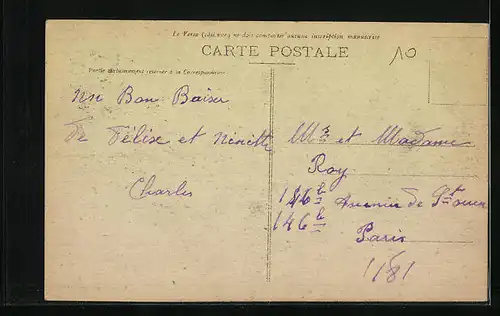 Le Verso (côté vue) ne doit comporter aucune inscription manuscrite
CARTE POSTALE
10
Partie exclusivement réservée à la Correspondance
un Bon Baiser
de Félixe et Ninette
Charles
Mr et Madame
Roy
146 b
Avenue de St ouen
146 b
Paris